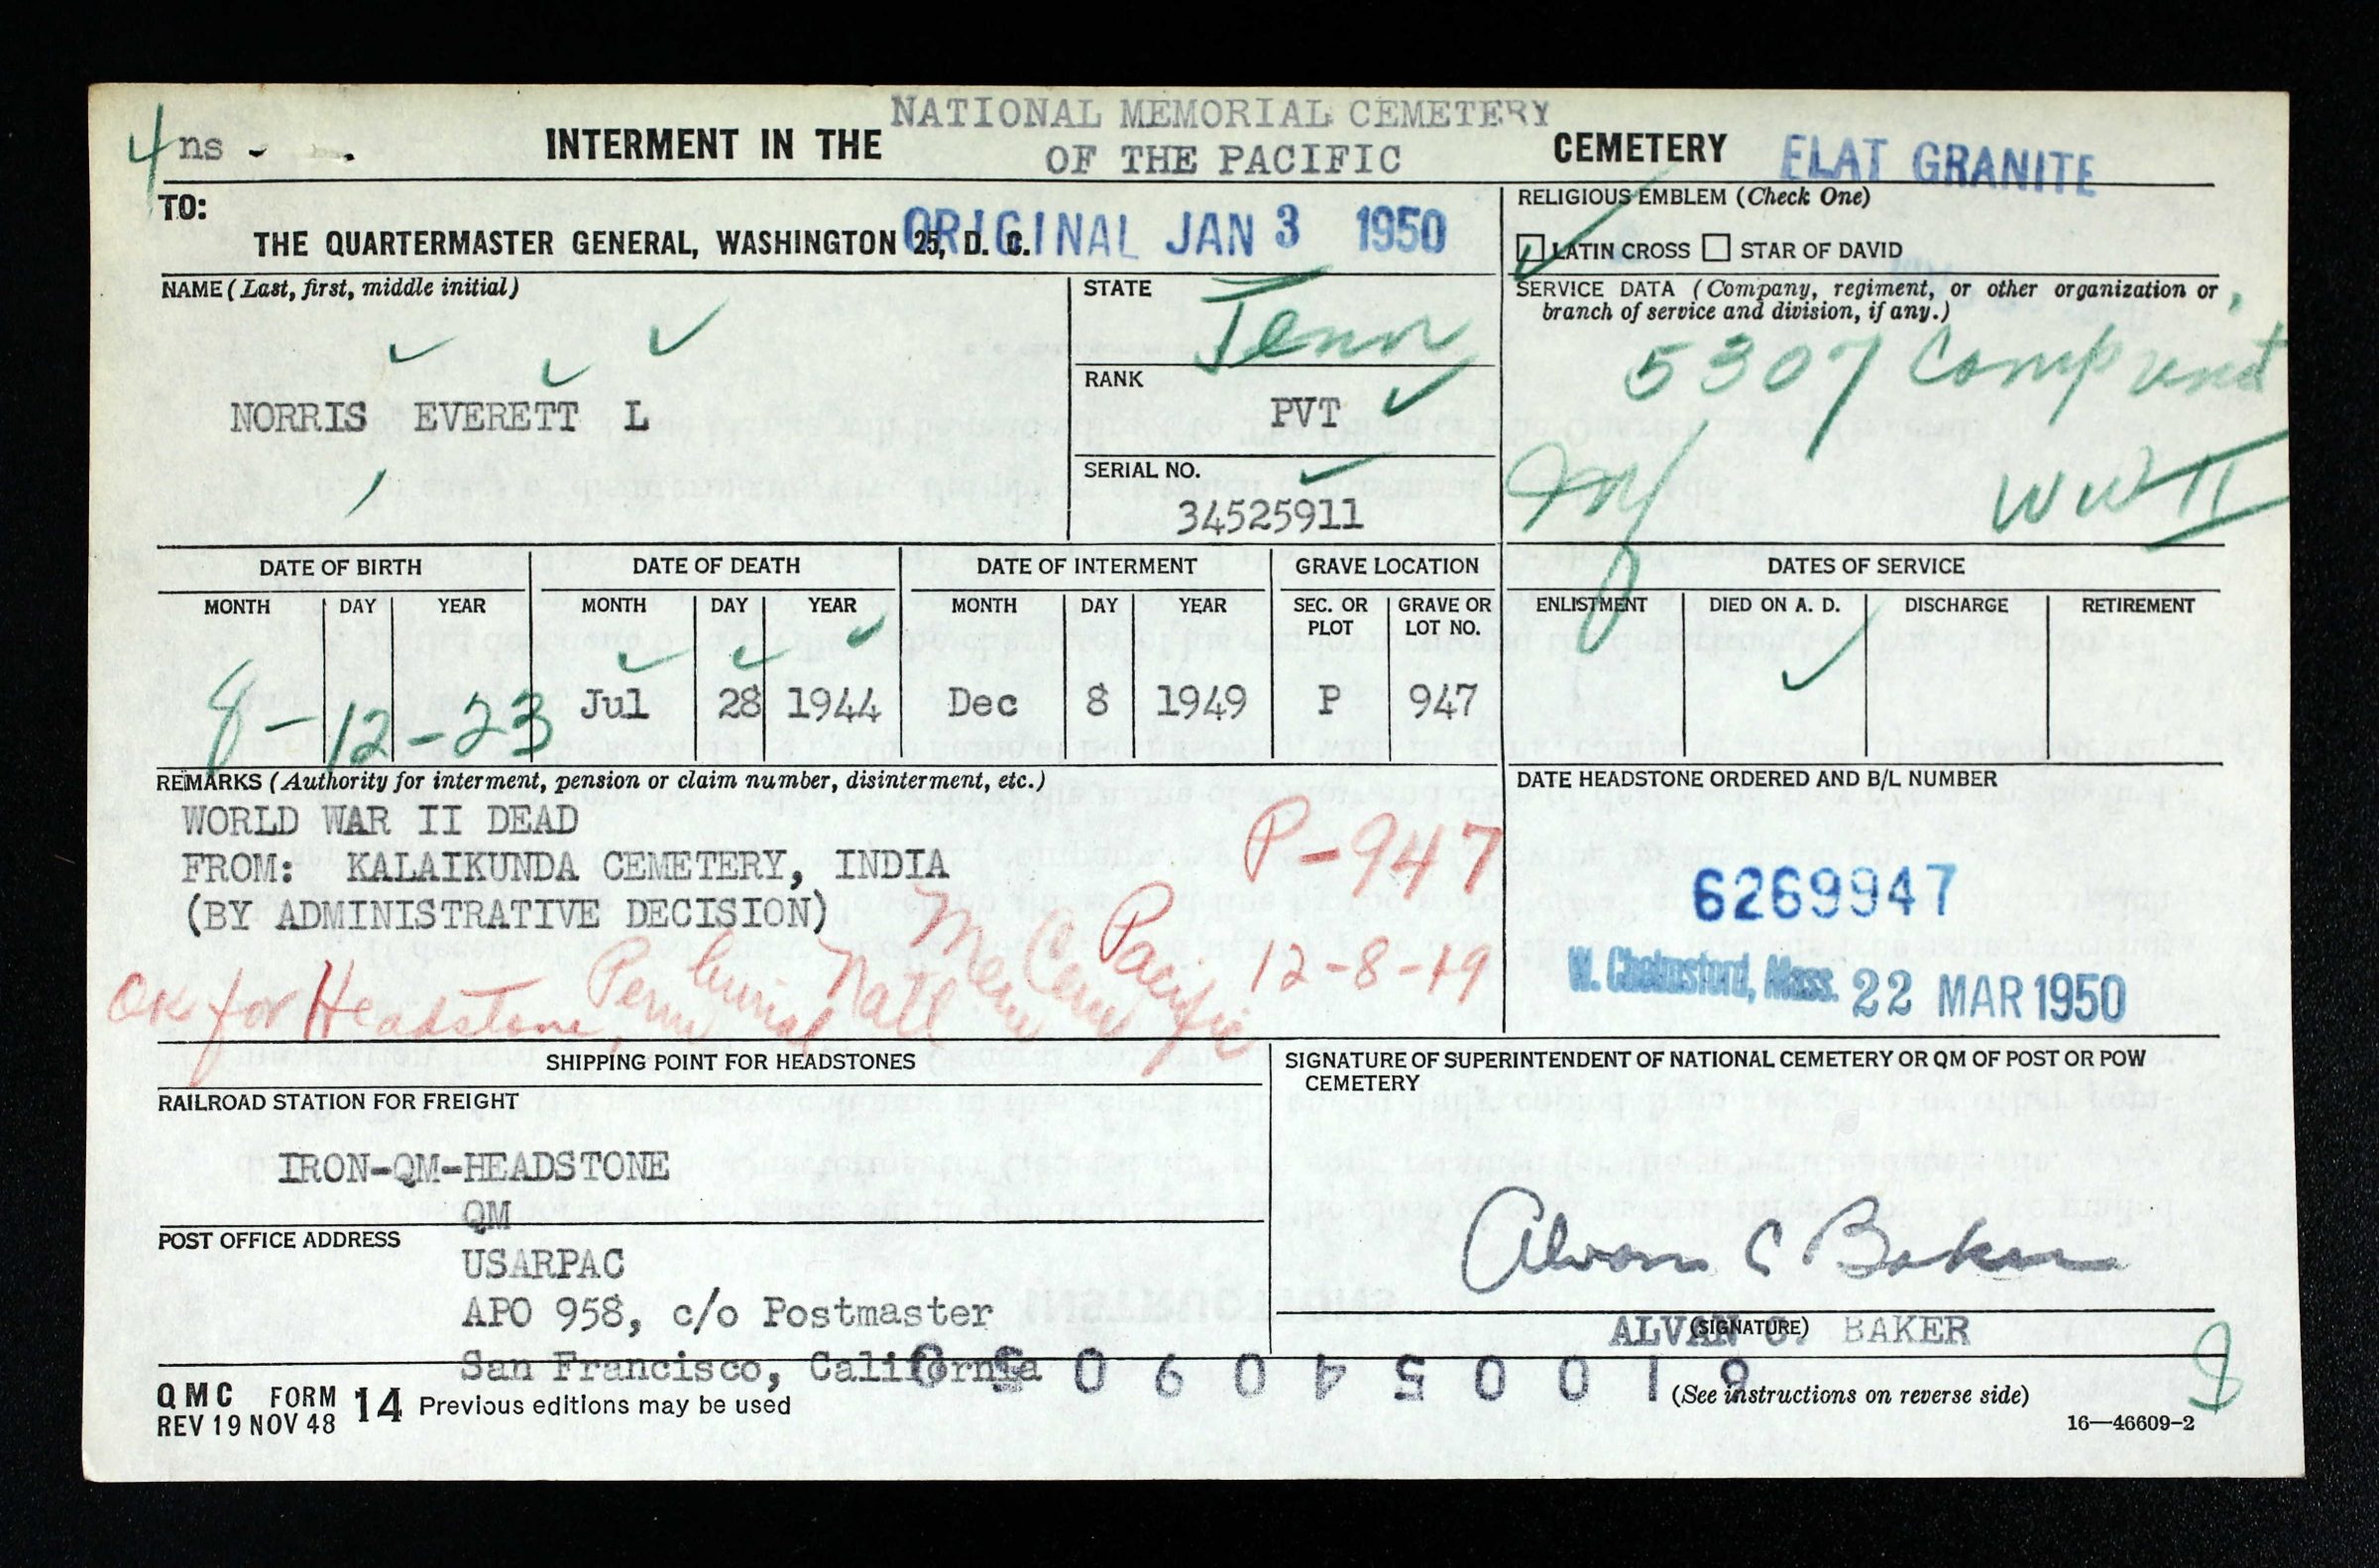 4 ns -
NATIONAL MEMORIAL CEMETERY
INTERMENT IN THE OF THE PACIFIC CEMETERY
FLAT GRANITE
TO:
THE QUARTERMASTER GENERAL, WASHINGTON 25, D. C.
ORIGINAL JAN 3 1950
RELIGIOUS EMBLEM (Check One)
LATIN CROSS STAR OF DAVID
NAME (Last, first, middle initial)
NORRIS EVERETT L
STATE
Tenn
RANK
PVT
SERIAL NO.
34525911
SERVICE DATA (Company, regiment, or other organization or
branch of service and division, if any.)
5307 Comp unit
WW II
DATE OF BIRTH DATE OF DEATH DATE OF INTERMENT GRAVE LOCATION DATES OF SERVICE
MONTH DAY YEAR MONTH DAY YEAR MONTH DAY YEAR SEC. OR PLOT GRAVE OR LOT NO. ENLISTMENT DIED ON A. D. DISCHARGE RETIREMENT
8-12-23 Jul 28 1944 Dec 8 1949 P 947
REMARKS (Authority for interment, pension or claim number, disinterment, etc.)
WORLD WAR II DEAD
FROM: KALAIKUNDA CEMETERY, INDIA
(BY ADMINISTRATIVE DECISION)
P-947
OK for Headstone, Perm burial Natl Mem Cem Pacific 12-8-49
DATE HEADSTONE ORDERED AND B/L NUMBER
6269947
W. Chelmsford, Mass. 22 MAR 1950
SHIPPING POINT FOR HEADSTONES
RAILROAD STATION FOR FREIGHT
IRON-QM-HEADSTONE
QM
POST OFFICE ADDRESS
USARPAC
APO 958, c/o Postmaster
San Francisco, California
SIGNATURE OF SUPERINTENDENT OF NATIONAL CEMETERY OR QM OF POST OR POW
CEMETERY
Alvan C Baker
(SIGNATURE)
ALVAN C. BAKER
QMC FORM 14 Previous editions may be used
REV 19 NOV 48
(See instructions on reverse side)
16—46609-2
8